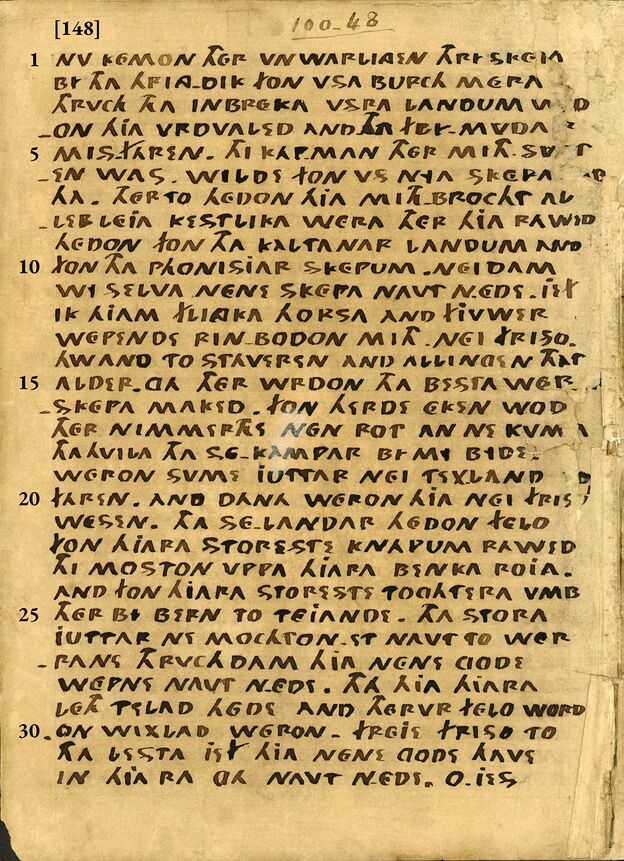 NV KEMON THER VNWARLINGEN THRI SKEPA
BI THA HRIA-DIK FON VSA BURCH MERA
THRVCH THA INBREKA VSRA LANDUM
-ON HIA VRDVALED AND THA FLY-MVDA
MIS-FAREN. THI KAP-MAN THER MITH
-EN WAS. WILDE FON VS NYA SKEPA
HA. THERTO HEDON HIA MITH-BROCHT AL
LERLEIA KESTLIKA WERA THER HIA RAWED
HEDON FON THA KALTANAR LANDUM AND
FON THA PHONISIAR SKEPUM. NEIDAM
WI SELVA NENE SKEPA NAVT NEDE. IEF
IK HIAM FLINGKA HORSA AND FIVWER
WEPENDE RIN-BODON MITH. NEI FRISO.
HWAND TO STAVEREN AND ALLINGEN THAT
ALDER-GA THER WRDON THA BESTA WER
-SKEPA MAKED. FON HERDE EKEN WOD
THER NIMMERTHE NEN ROT AN NE KVM
THAHVILA THA SE-KAMPAR BI MY BIDE.
WERON SVME IUTTAR NEI TEXLAND
FAREN. AND DANA WERON HIA NEI FRISO
WESEN. THA SE-LANDAR HEDON FELO
FON HIARA STORESTE KNAPUM RAWED
THI MOSTON VPPA HIARA BENKA ROIA.
AND FON HIARA STORESTE TOGHTERA VMB
THER BI BERN TO TEIANDE. THA STORA
IUTTAR NE MOCHTON-ET NAVT TO WER
-RANE THRVCHDAM HIA NENE GODE
WEPNE NAVT NEDE. THA HIA HIARA
LETH TELAD HEDE AND THERVR FELO WORD
-ON WIXLAD WERON. FREGIE FRISO TO
THA LESTA IEF HIA NENE GODE HAVE
IN HIARA GA NAVT NEDE. O.IES
[148]
100-48
1
5
10
15
20
25
30